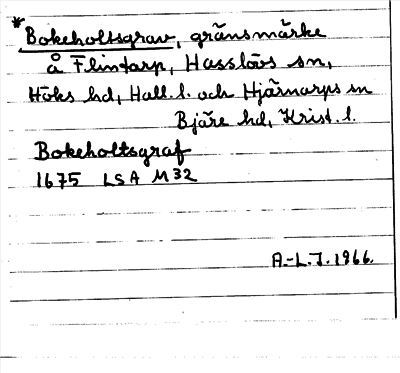 *Bokeholtsgrav, gränsmärke
å Flintarp, Hasslövs sn,
Höks hd, Hall. l. och Hjärnarps sn
Bjäre hd, Krist. l.
Bokeholtsgraf
1675 LSA M32
A.-L.J. 1966.